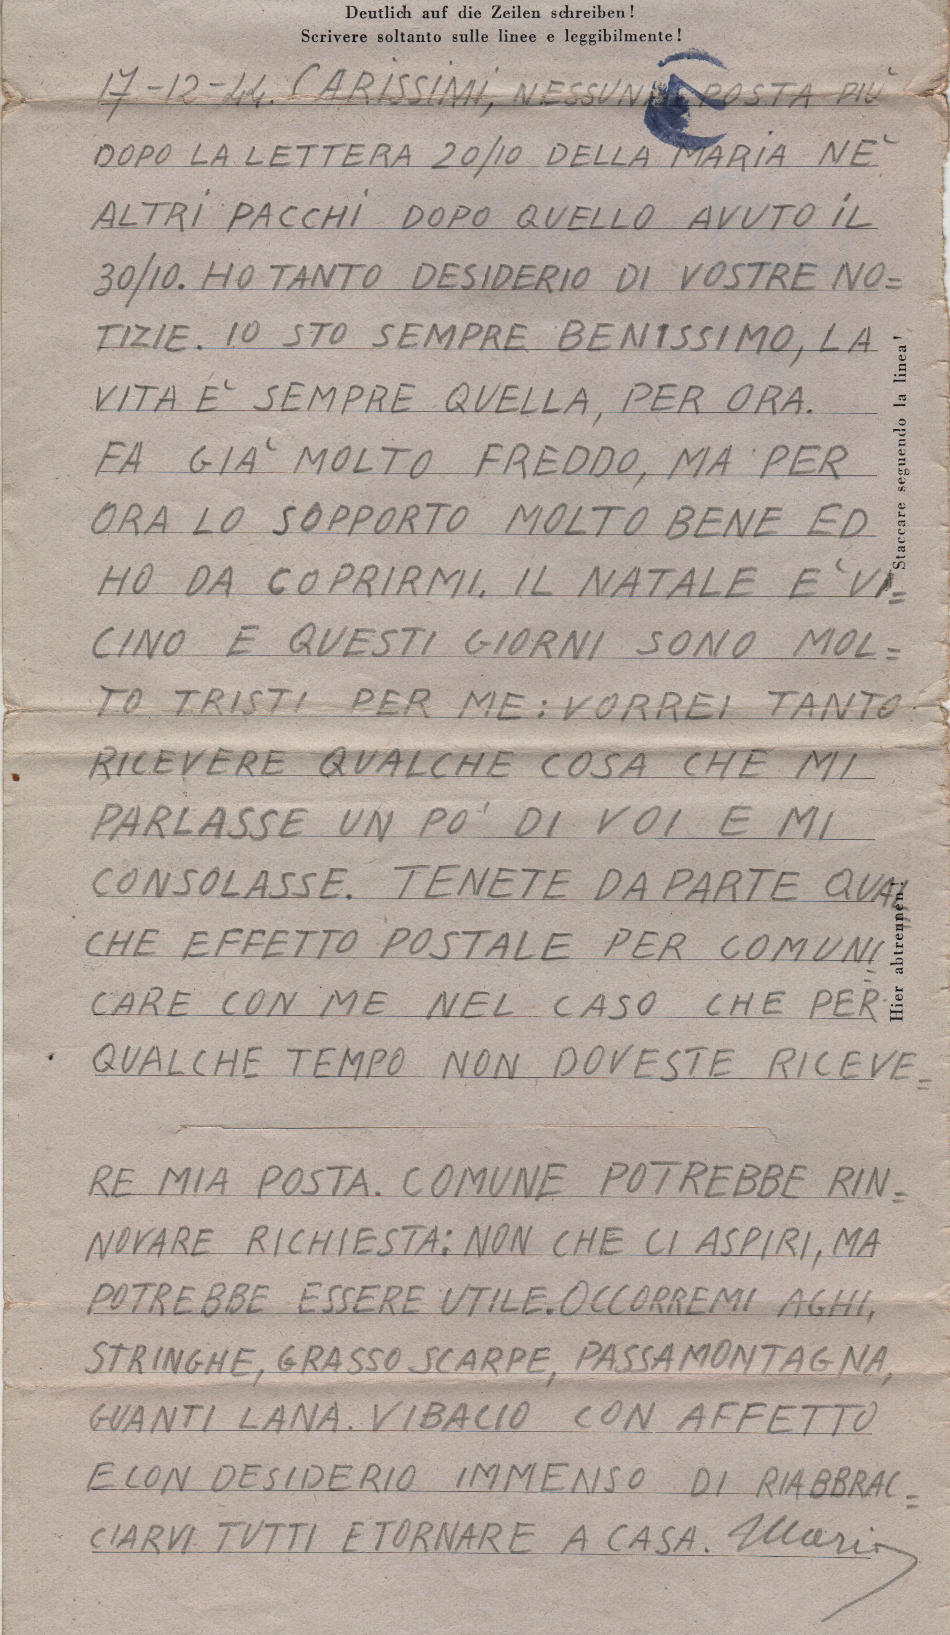 Deutlich auf die Zeilen schreiben!
Scrivere soltanto sulle linee e leggibilmente!
17-12-44. CARISSIMI, NESSUNA POSTA PIÙ
DOPO LA LETTERA 20/10 DELLA MARIA NE'
ALTRI PACCHI DOPO QUELLO AVUTO IL
30/10. HO TANTO DESIDERIO DI VOSTRE NO=
TIZIE. IO STO SEMPRE BENISSIMO, LA
VITA E' SEMPRE QUELLA, PER ORA.
FA GIA' MOLTO FREDDO, MA PER
ORA LO SOPPORTO MOLTO BENE ED
HO DA COPRIRMI. IL NATALE E' VI=
CINO E QUESTI GIORNI SONO MOL=
TO TRISTI PER ME: VORREI TANTO
RICEVERE QUALCHE COSA CHE MI
PARLASSE UN PO' DI VOI E MI
CONSOLASSE. TENETE DA PARTE QUAL
CHE EFFETTO POSTALE PER COMUNI=
CARE CON ME NEL CASO CHE PER
QUALCHE TEMPO NON DOVESTE RICEVE=
RE MIA POSTA. COMUNE POTREBBE RIN=
NOVARE RICHIESTA: NON CHE CI ASPIRI, MA
POTREBBE ESSERE UTILE. OCCORREMI AGHI,
STRINGHE, GRASSO SCARPE, PASSAMONTAGNA,
GUANTI LANA. VI BACIO CON AFFETTO
E CON DESIDERIO IMMENSO DI RIABBRAC=
CIARVI TUTTI E TORNARE A CASA. Mario
Staccare seguendo la linea!
Hier abtrennen!